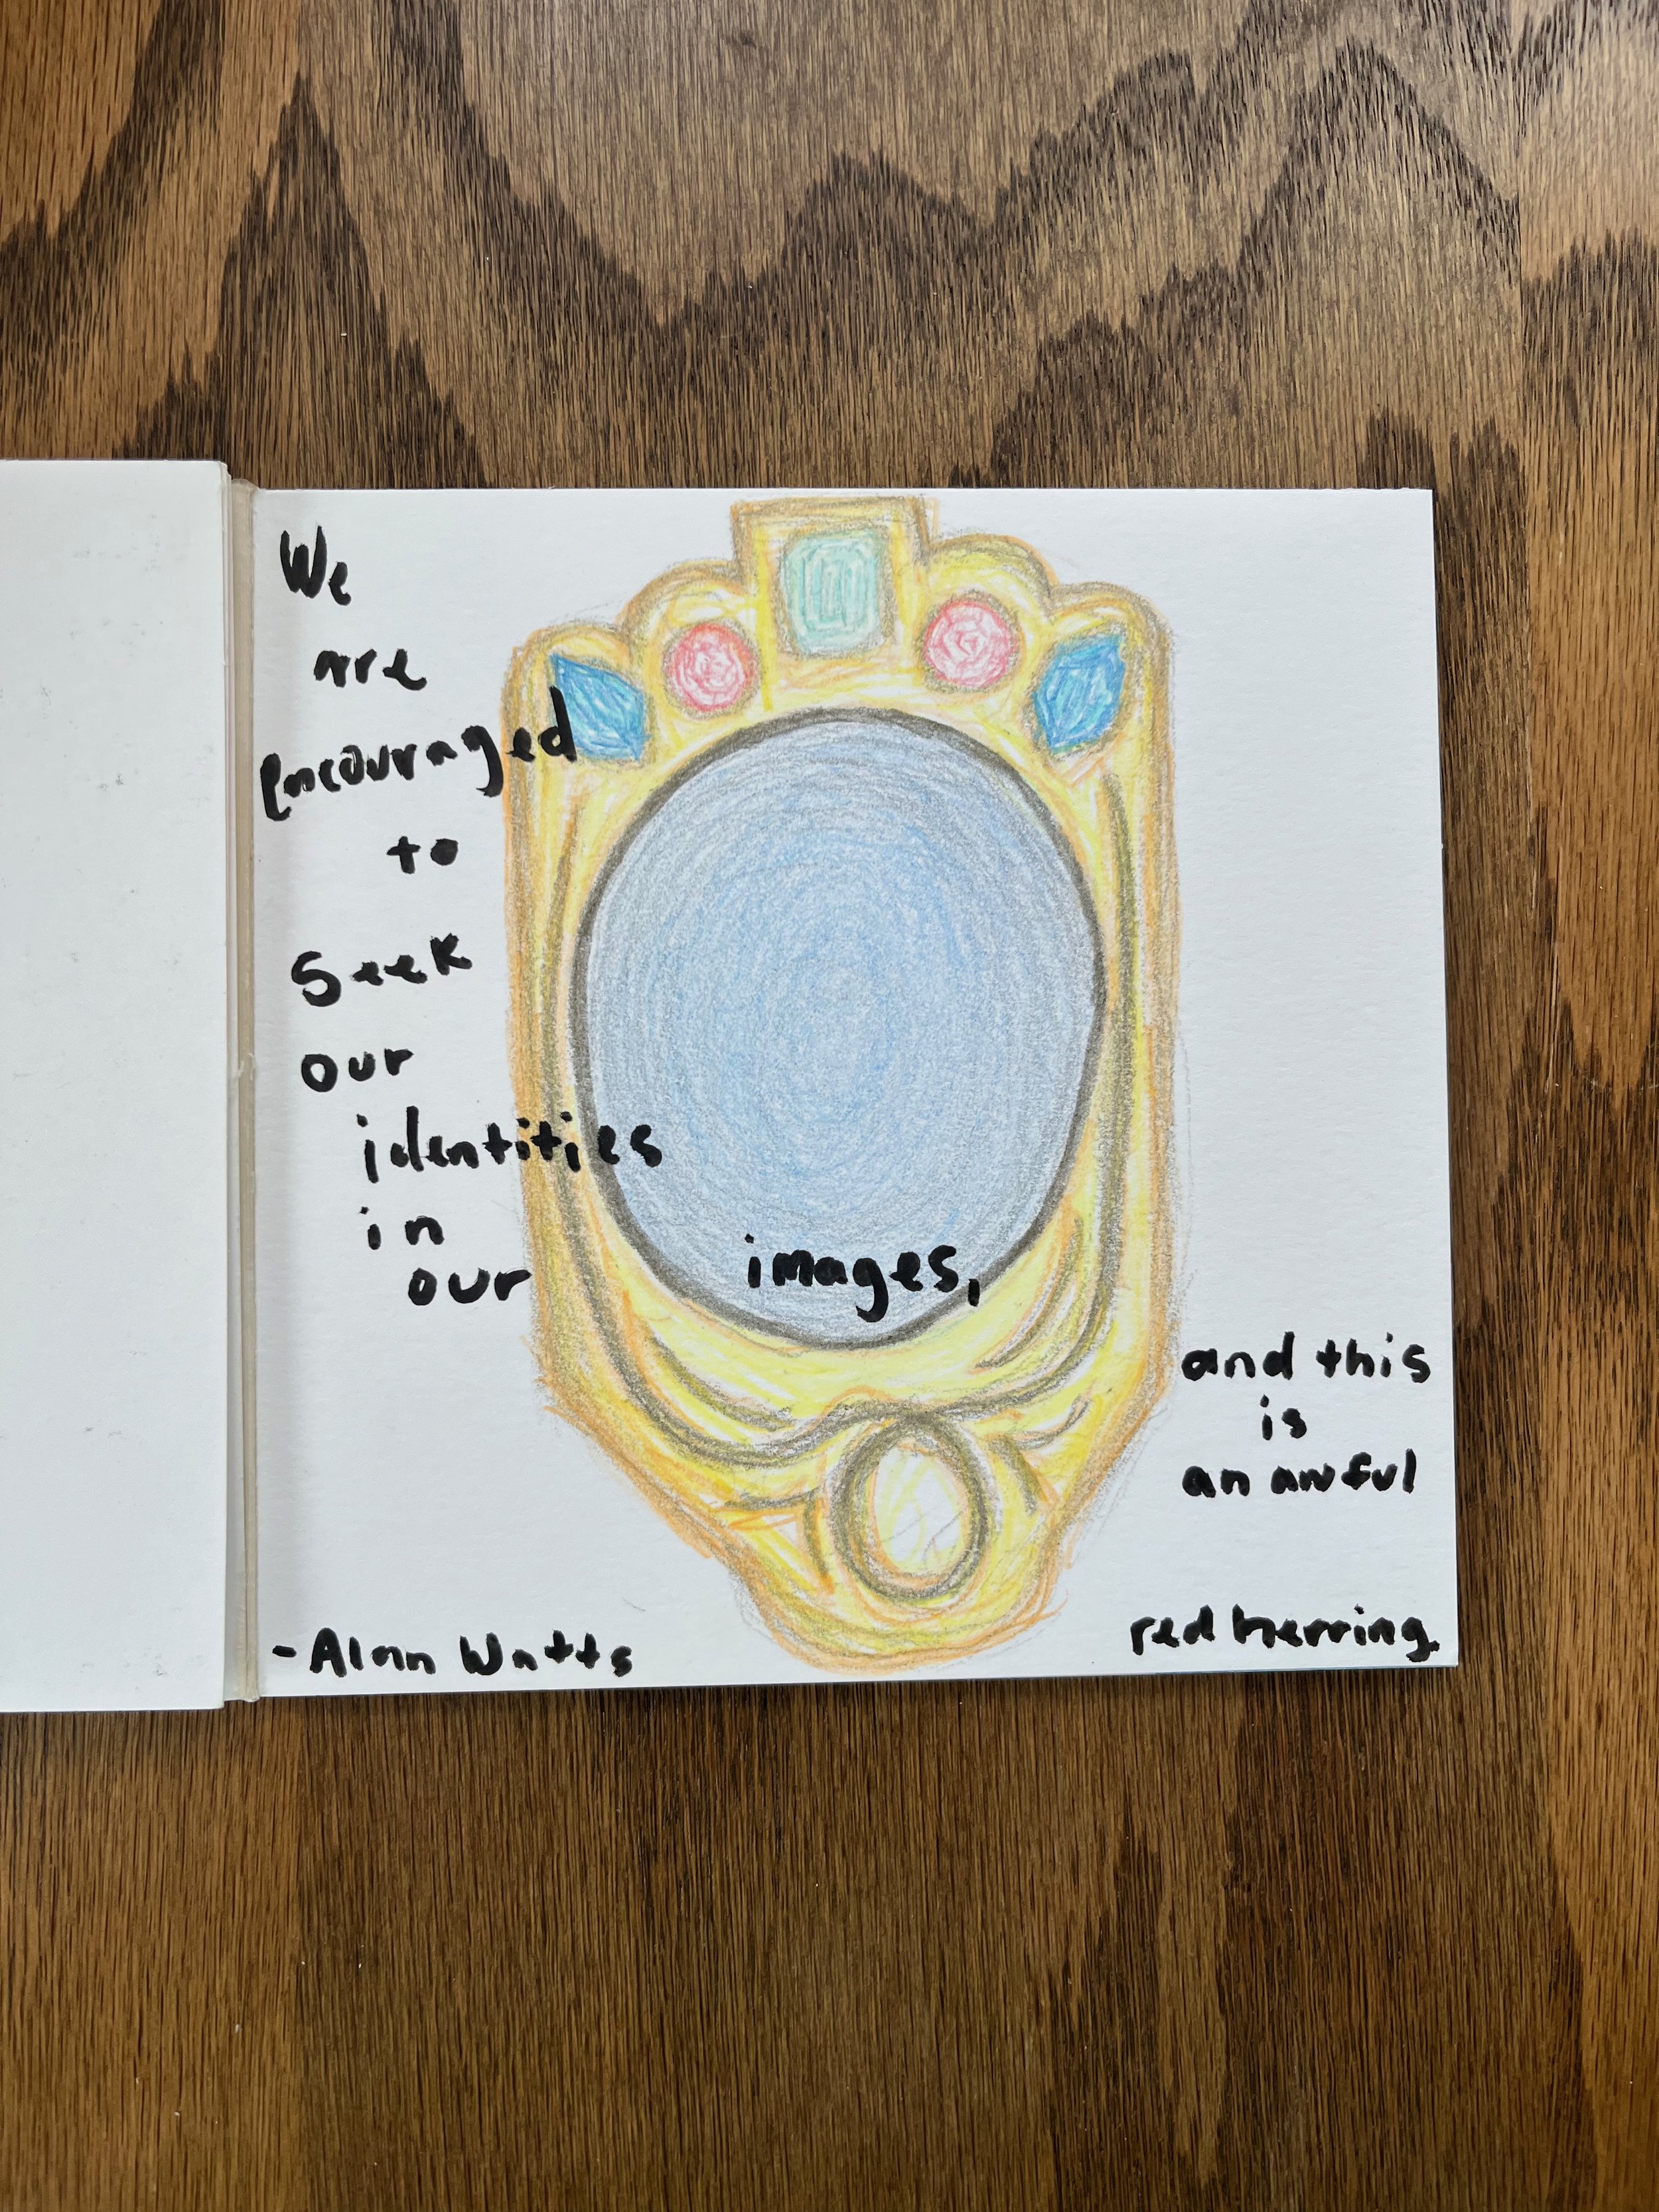 We
are
encouraged
to
seek
our
identities
in
our images,
and this
is
an awful
red herring
- Alan Watts